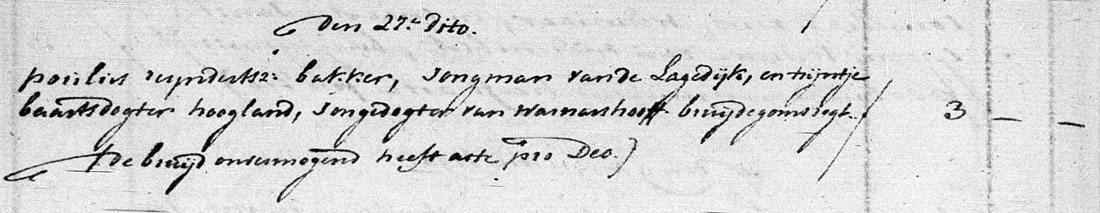 Den 27e. Dito.
poulus reynderts: bakker, Jongman vande Lagedijk, en trijntje
baartsdogter hoogland, Jongedogter van Warmarshooff bruijdegoms regt. 3 — —
(de bruijd onvermogend heeft acte pro Deo.)